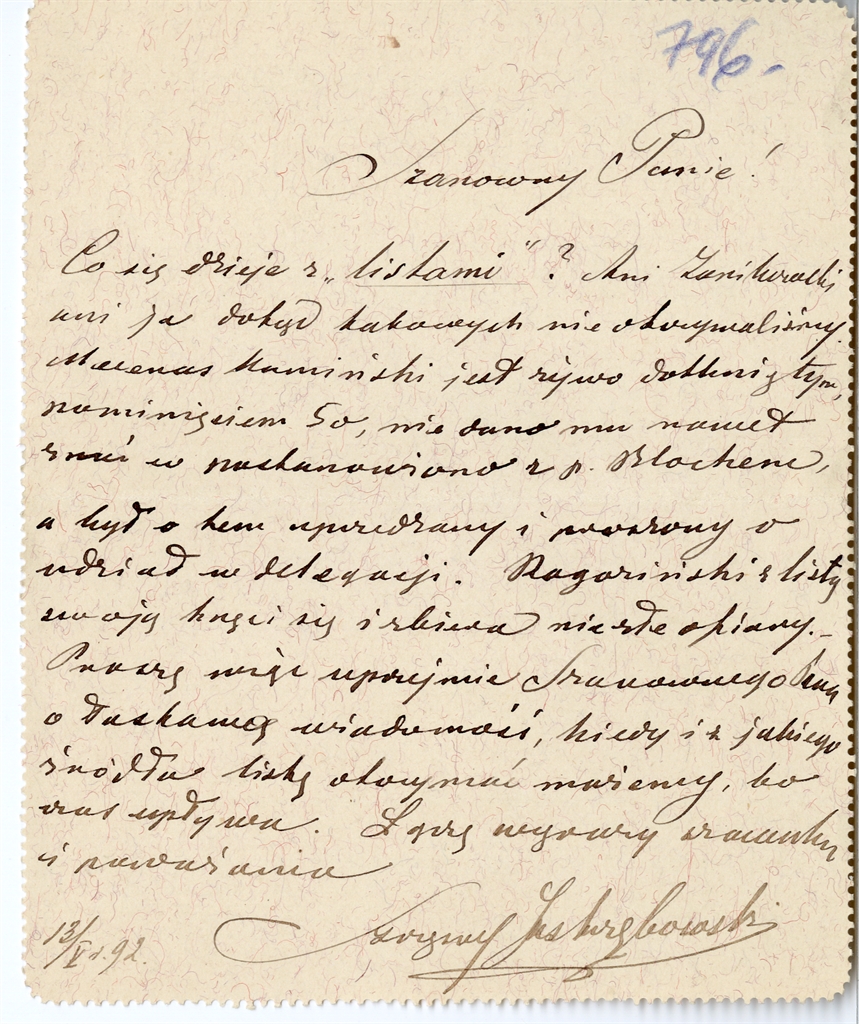 796.-
Szanowny Panie!
Co się dzieje z „listami“? Ani
ani ja dotąd takowych nie otrzymaliśmy.
Mecenas Kamiński jest żywo dotknięty
pominięciem Go, nie dano mu nawet
znać w postanowiono z p. Blochem,
a był o tem uprzedzany i proszony o
udział w delegacji. Rogoziński z listą
swoją kręci się i zbiera niezłe ofiary.-
Proszę więc uprzejmie Szanownego Pana
o łaskawą wiadomość, kiedy i z jakiego
źródła listę otrzymać możemy, bo
czas upływa. Łączę wyrazy szacunku
i poważania
Szczęsny Jastrzębowski
13/V r. 92.